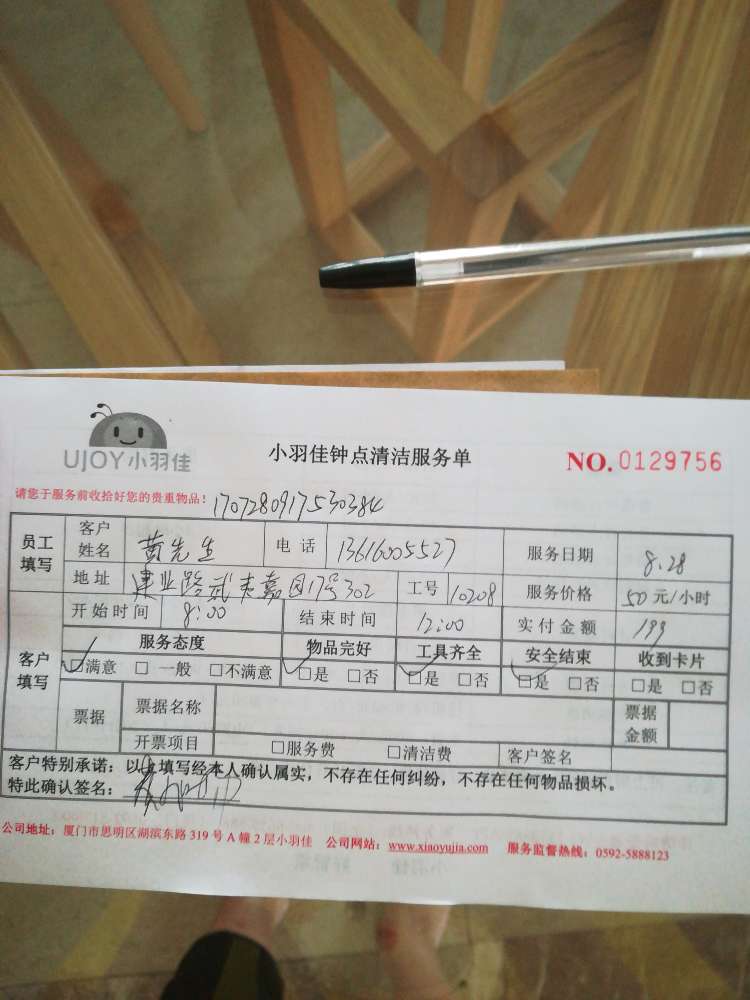 UJOY小羽佳
小羽佳钟点清洁服务单
NO. 0129756
请您于服务前收拾好您的贵重物品! 1707280917530384
员工填写 客户姓名 黄先生 电话 13616005527 服务日期 8.28
地址 建业路武夷嘉园17号302 工号 10208 服务价格 50元/小时
开始时间 8:00 结束时间 12:00 实付金额 199
客户填写 服务态度 物品完好 工具齐全 安全结束 收到卡片
☑满意 □一般 □不满意 ☑是 □否 ☑是 □否 ☑是 □否 □是 □否
票据 票据名称 票据金额
开票项目 □服务费 □清洁费 客户签名
客户特别承诺：以上填写经本人确认属实，不存在任何纠纷，不存在任何物品损坏。
特此确认签名：
公司地址：厦门市思明区湖滨东路319号A幢2层小羽佳 公司网站：www.xiaoyujia.com 服务监督热线：0592-5888123